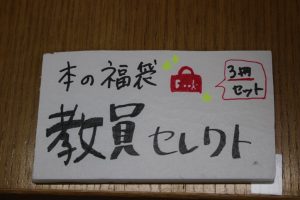 本の福袋
3冊
セット
教員セレクト